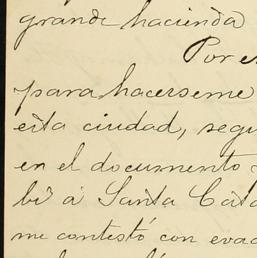 grande hacienda
Por
para hacerseme
esta ciudad, segu
en el documento
bí á Santa Cata
me contestó con evac